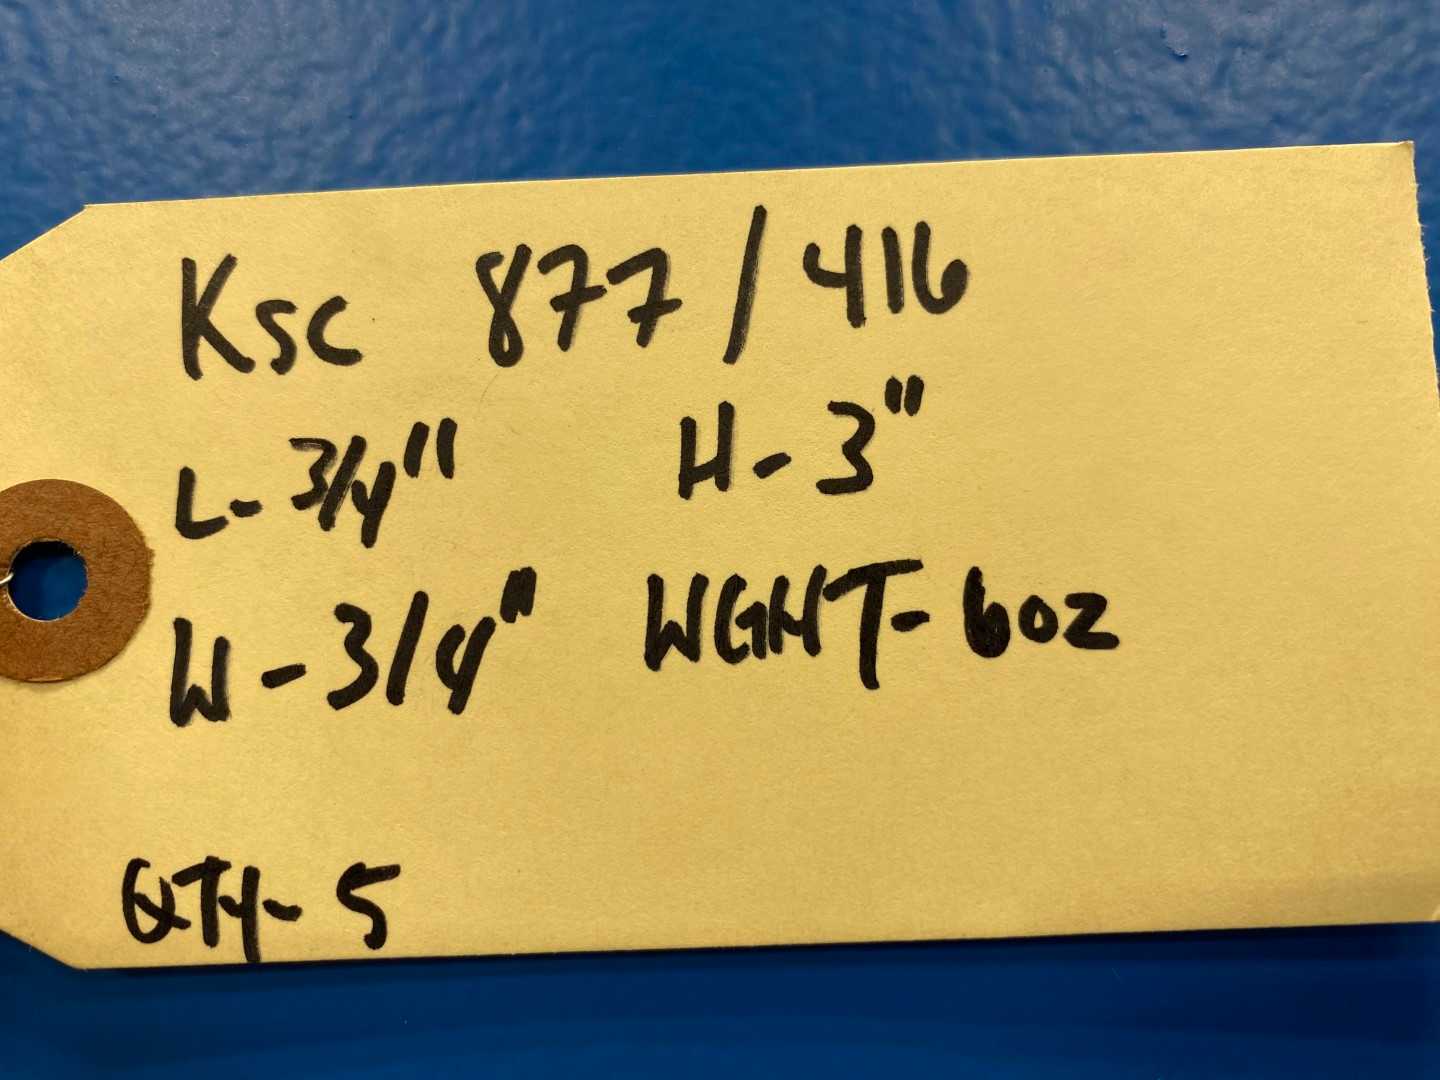 KSC 877/416
L-3/4" H-3"
W-3/4" WGHT-6oz
QTY-5